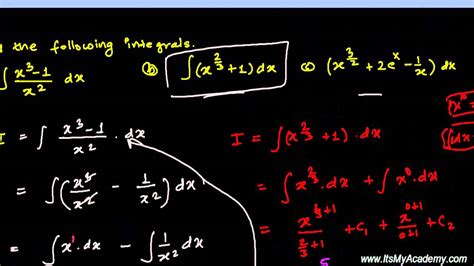 the following integrals.
∫ (x³-1)/x² dx (b) ∫(x^(2/3)+1) dx (c) (x^(3/2) + 2eˣ - 1/x) dx
I = ∫ (x³-1)/x² · dx
= ∫(x³/x² - 1/x²) dx
= ∫x¹·dx - ∫ 1/x² dx
I = ∫(x^(2/3)+1)·dx
= ∫x^(2/3) dx + ∫x⁰·dx
= x^(2/3+1)/(2/3+1) + c₁ + x^(0+1)/(0+1) + c₂
5
(x⁰ =
∫1dx
www.ItsMyAcademy.com